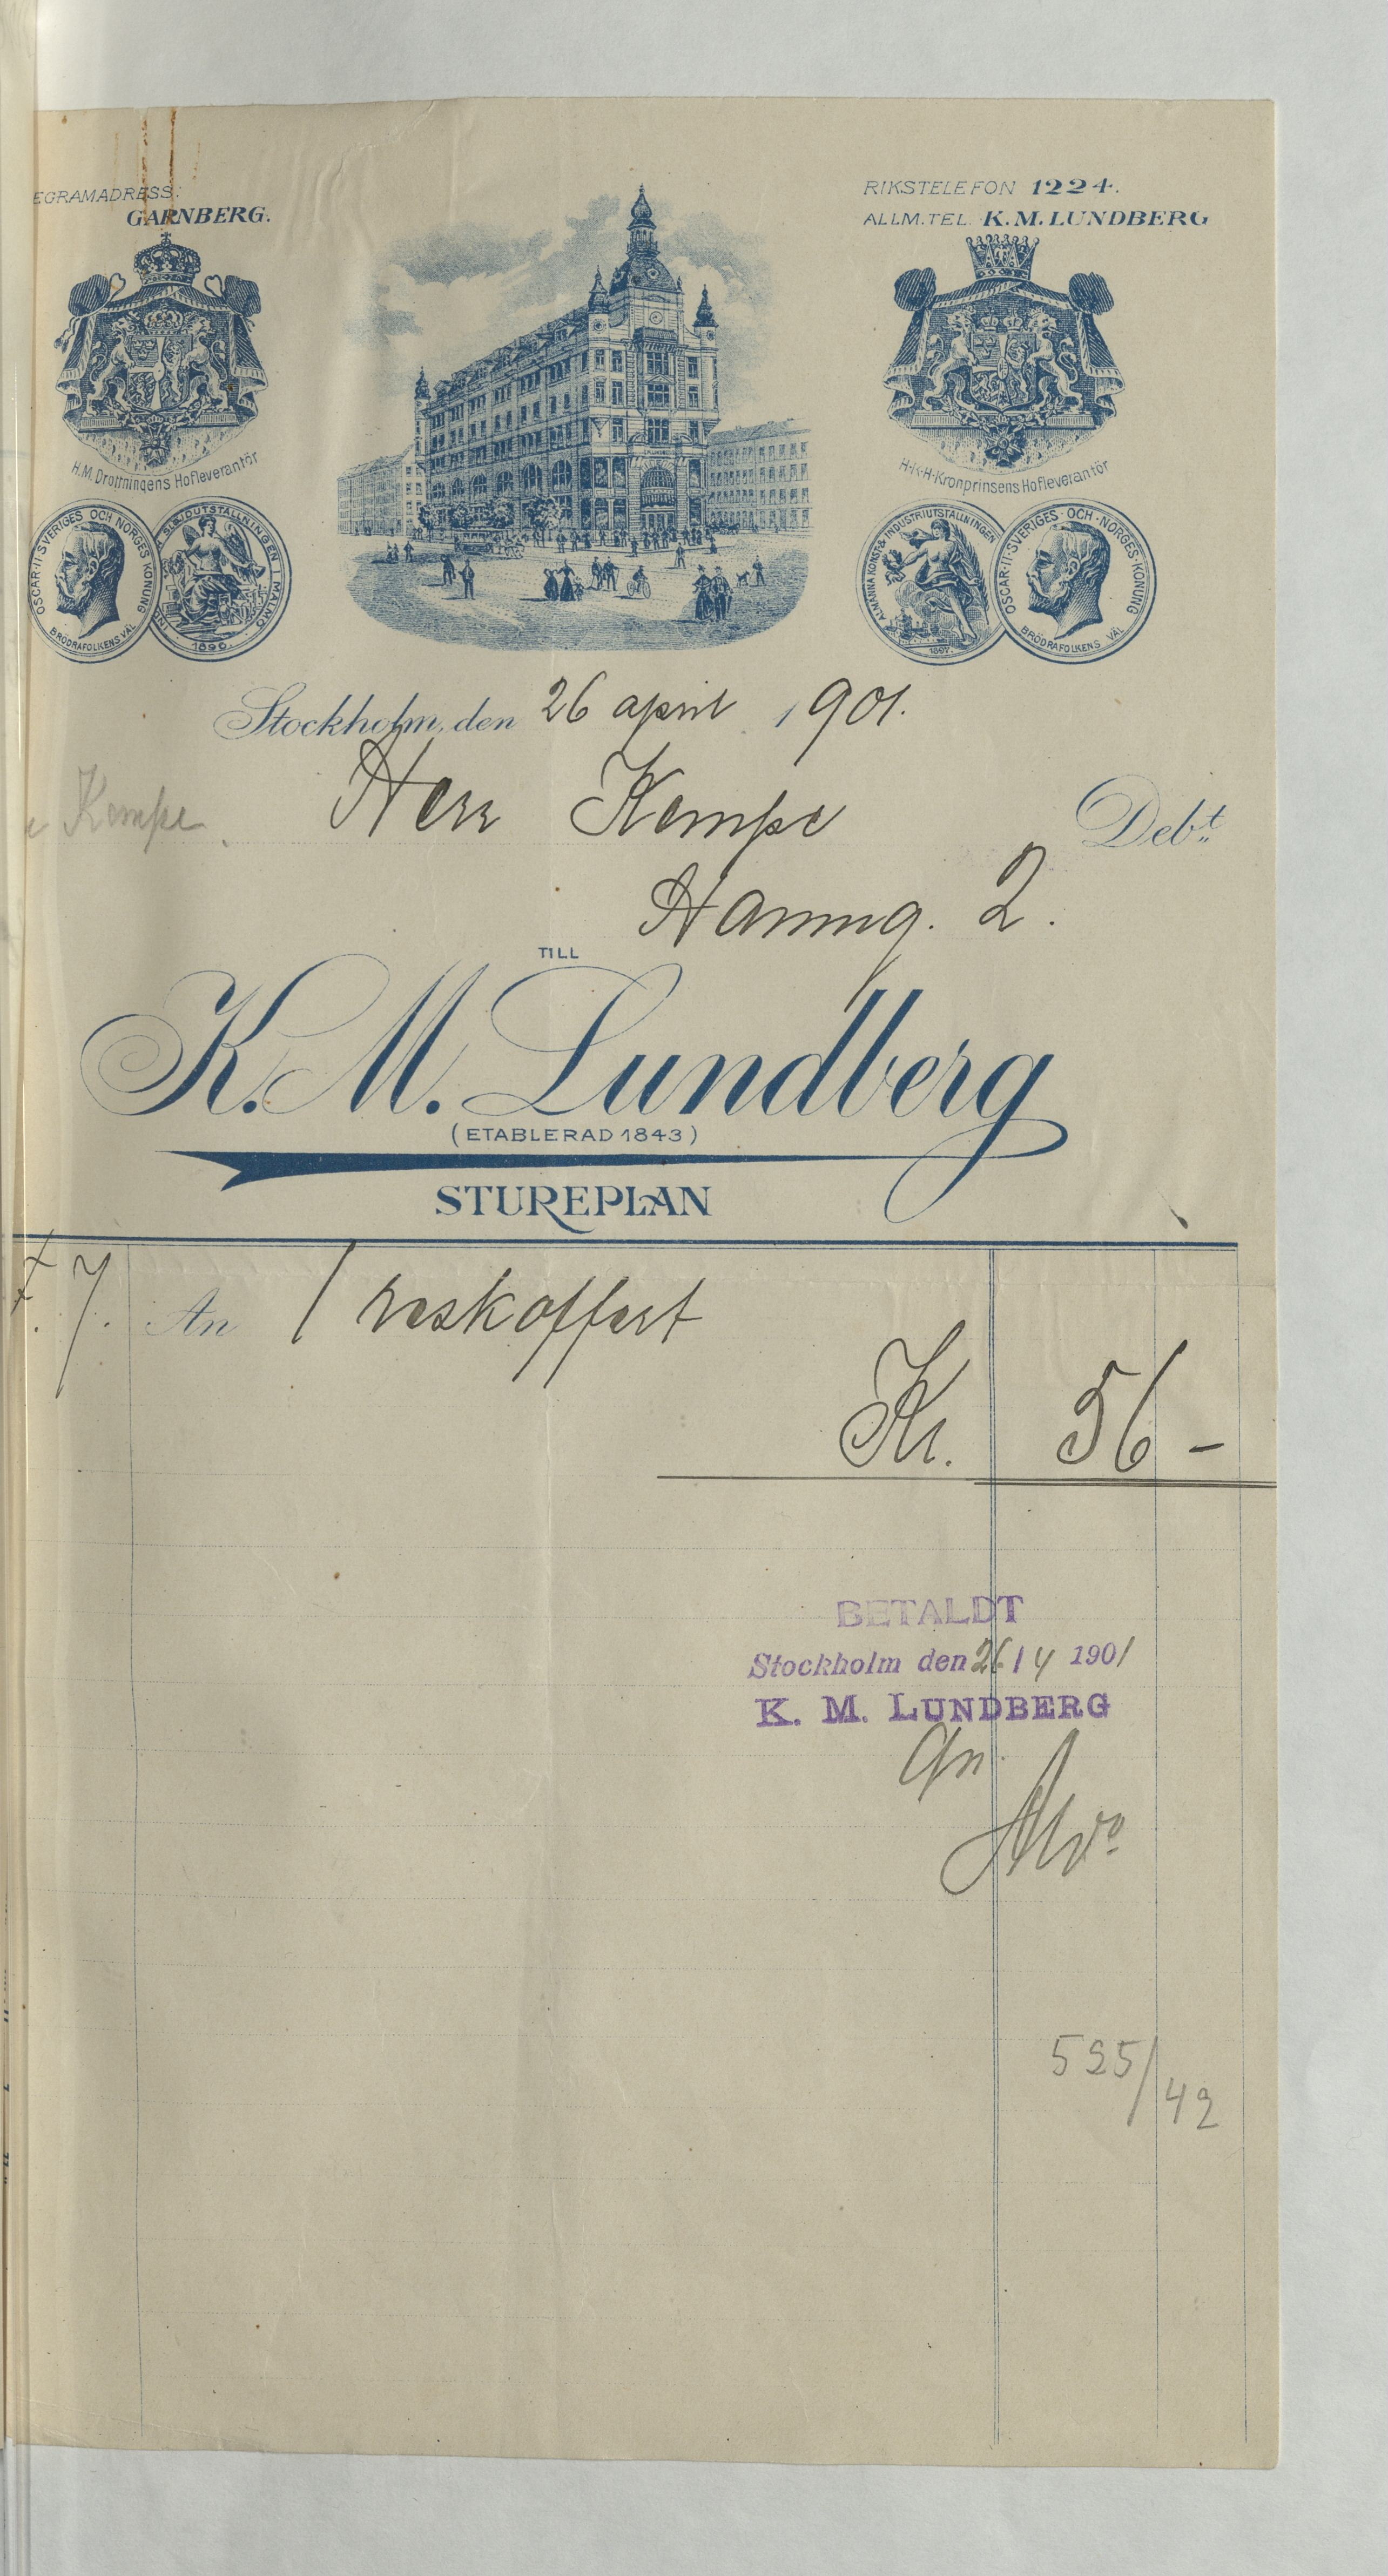 EGRAMADRESS:
GARNBERG.
RIKSTELEFON 1224.
ALLM.TEL. K. M. LUNDBERG
H.M. Drottningens Hofleverantör
H.K.H. Kronprinsens Hofleverantör
OSCAR·II·SVERIGES OCH NORGES KONUNG
BRÖDRAFOLKENS VÄL
SLÖJDUTSTÄLLNINGEN I MALMÖ
1896.
ALMÄNNA KONST & INDUSTRIUTSTÄLLNINGEN
1897.
OSCAR·II·SVERIGES·OCH·NORGES·KONUNG
BRÖDRAFOLKENS VÄL
Stockholm, den 26 april 1901.
Kempe Herr Kempe Debt
Hamng. 2.
TILL
K. M. Lundberg
(ETABLERAD 1843)
STUREPLAN
7. An 1 reskoffert
Kr. 56 –
BETALDT
Stockholm den 26/4 1901
K. M. LUNDBERG
525/42